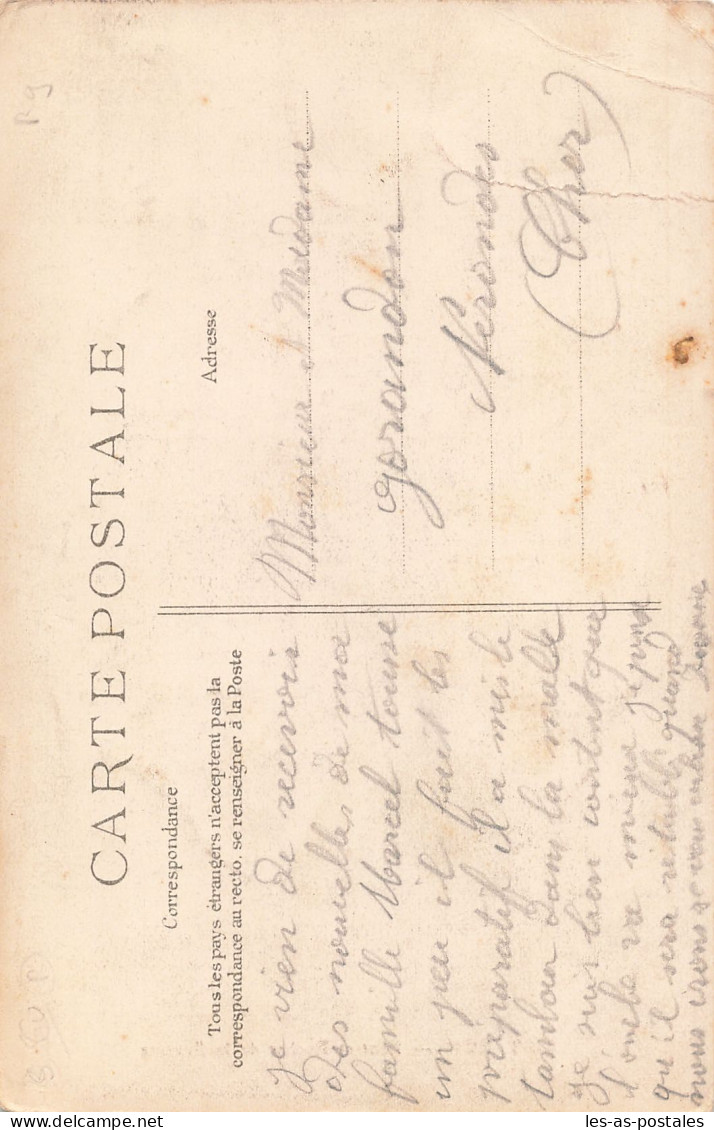 CARTE POSTALE
Correspondance
Tous les pays étrangers n'acceptent pas la
correspondance au recto. se renseigner à la Poste
je vien de recevoir
des nouvelles de ma
famille Marcel tousse
un peu il fait les
préparatif il a mis le
tambour dans la malle
je suis bien content que
l'oncle va mieux je pense
qu'il sera rétabli quand
nous irons je vous embrasse
Adresse
Monsieur et Madame
Gorandon
Nérondes
(Cher)
delcampe.net
les-as-postales